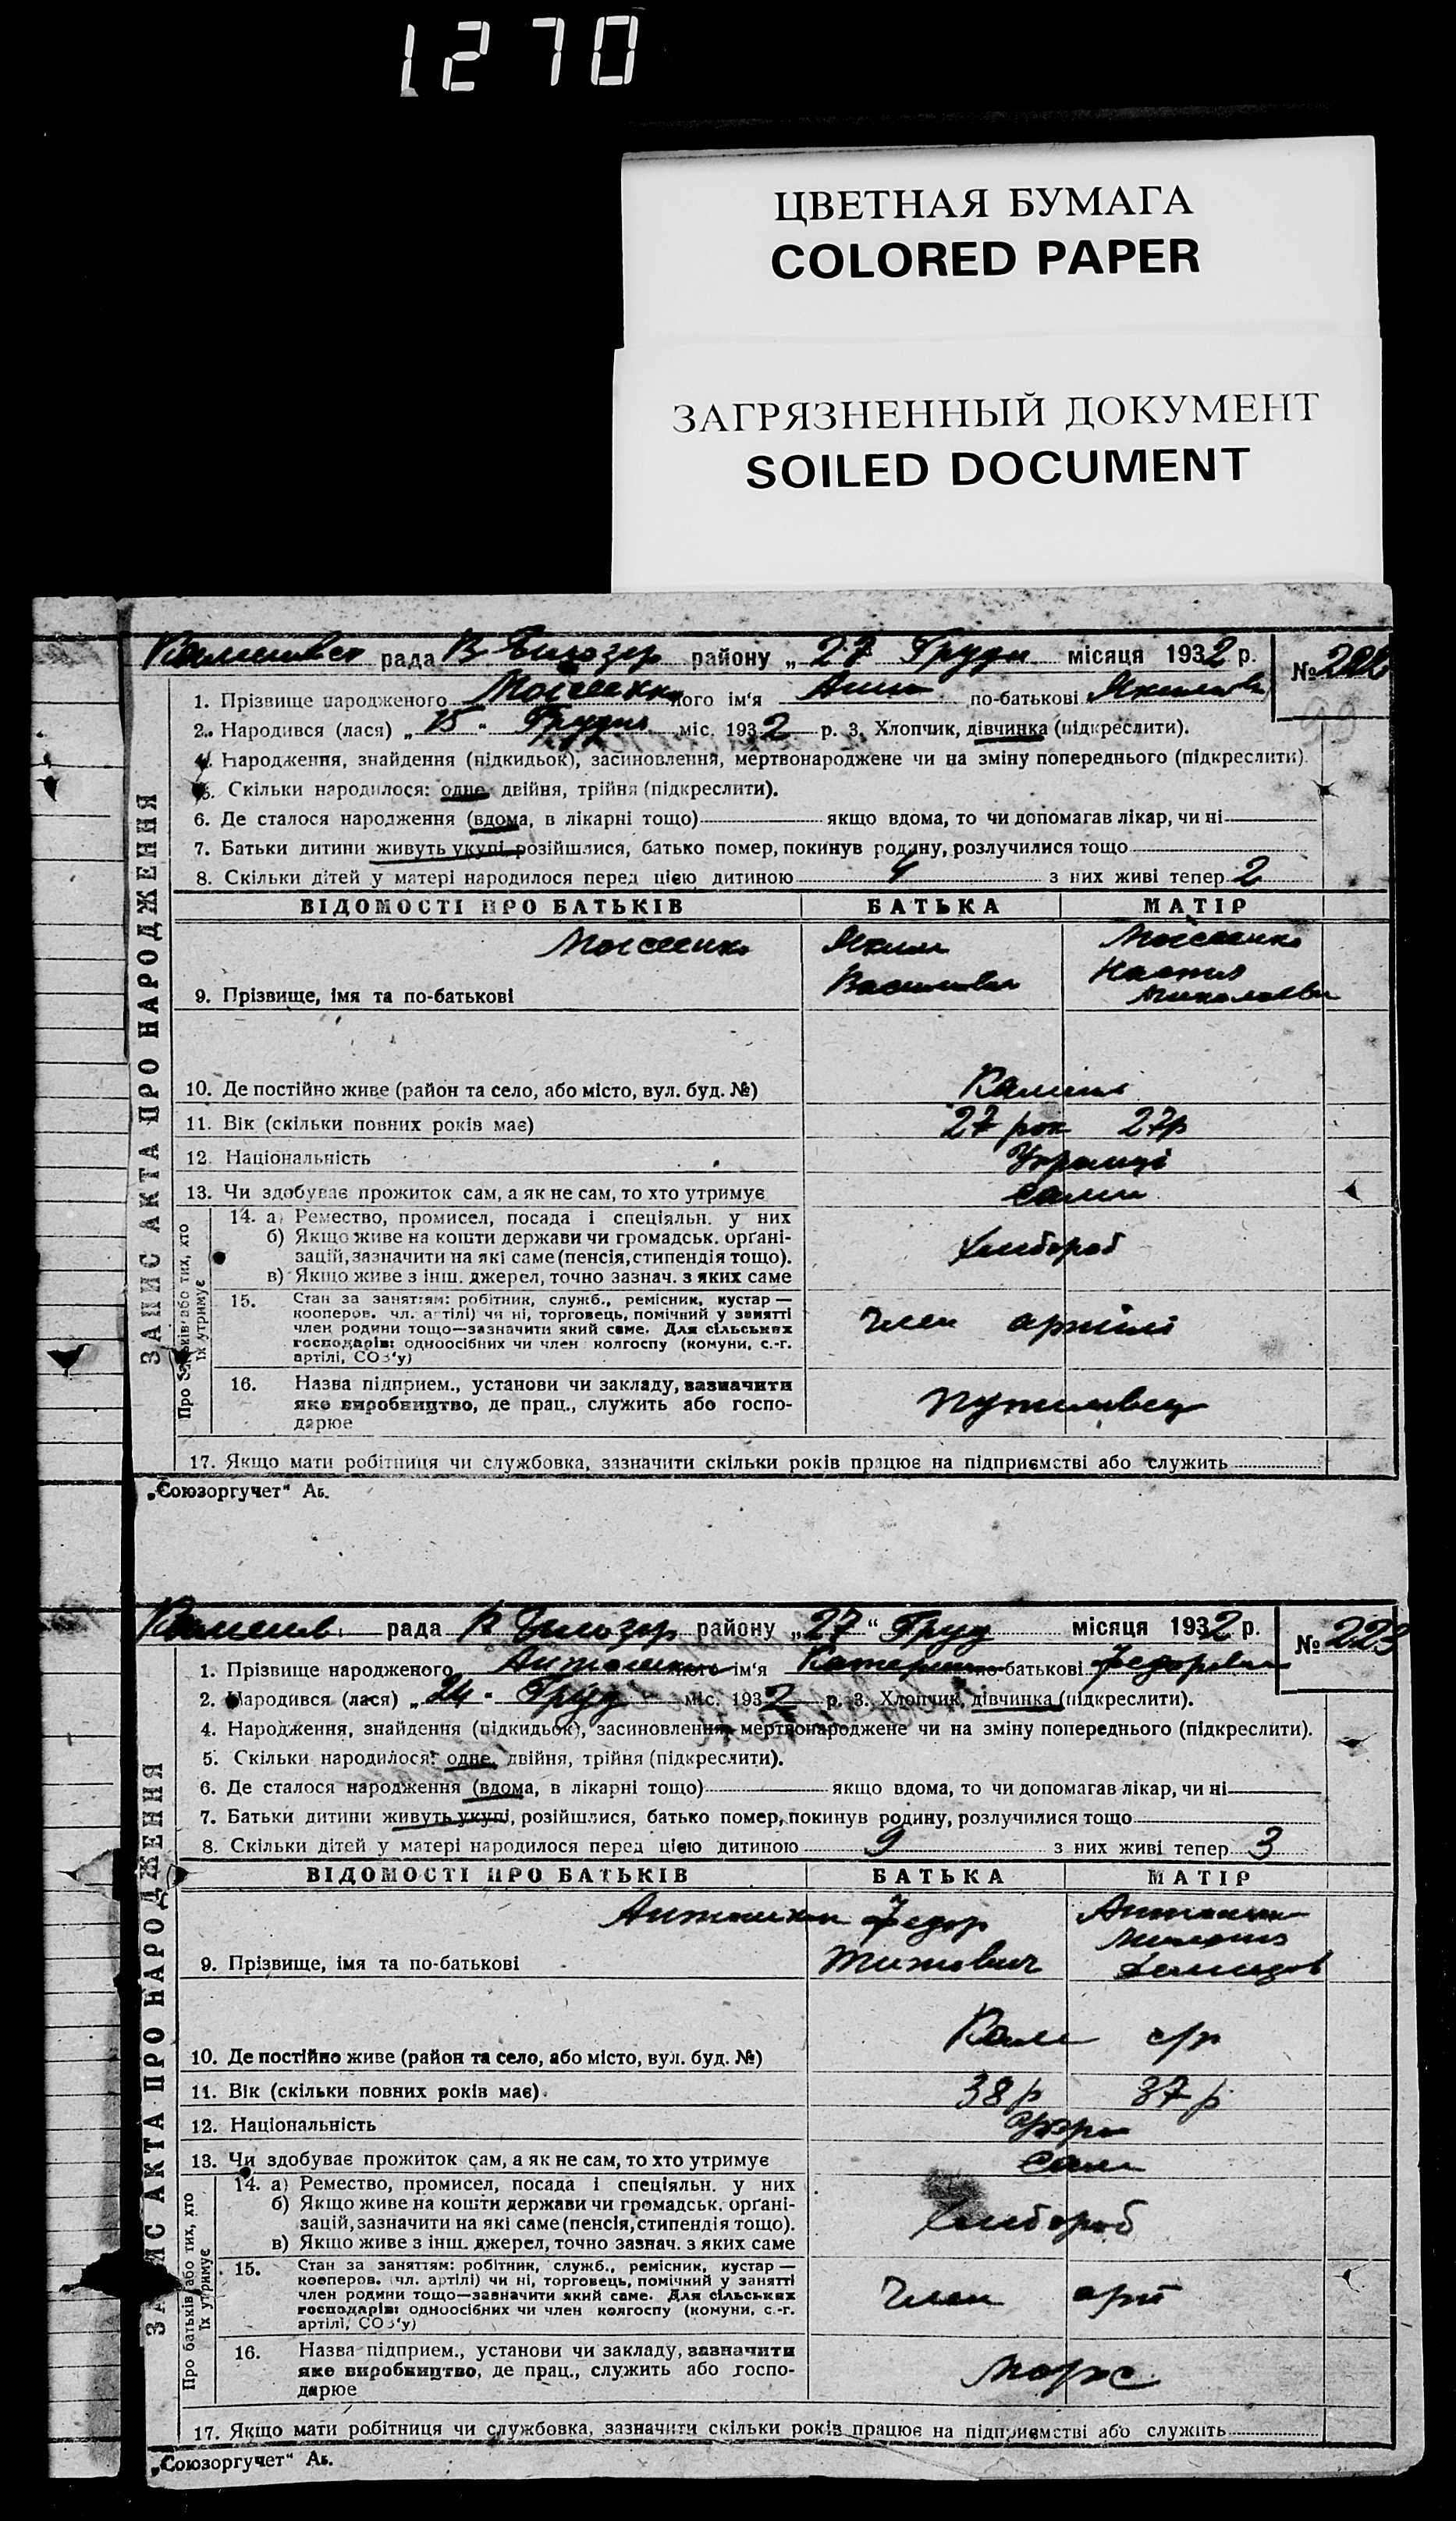 1270
ЦВЕТНАЯ БУМАГА
COLORED PAPER
ЗАГРЯЗНЕННЫЙ ДОКУМЕНТ
SOILED DOCUMENT
рада В Білозер району „ 27 Грудн місяця 1932 р.
№
1. Прізвище народженого Моісеенко його ім'я Анна по-батькові
2. Народився (лася) „ 15 " Грудня міс. 1932 р. 3. Хлопчик, дівчинка (підкреслити).
4. Народження, знайдення (підкидьок), засиновлення, мертвонароджене чи на зміну попереднього (підкреслити)
5. Скільки народилося: одне, двійня, трійня (підкреслити).
6. Де сталося народження (вдома, в лікарні тощо) якщо вдома, то чи допомагав лікар, чи ні
7. Батьки дитини живуть укупі, розійшлися, батько помер, покинув родину, розлучилися тощо
8. Скільки дітей у матері народилося перед цією дитиною 4 з них живі тепер 2
ВІДОМОСТІ ПРО БАТЬКІВ БАТЬКА МАТІР
Моісеенко Яким Моісеенко
Настя
9. Прізвище, імя та по-батькові
Миколаевн
10. Де постійно живе (район та село, або місто, вул. буд. №)
11. Вік (скільки повних років має) 27 рок 27р
12. Національність Українці
13. Чи здобуває прожиток сам, а як не сам, то хто утримує сами
ЗАПИС АКТА ПРО НАРОДЖЕННЯ
Про батьків або тих, хто їх утримує
14. а) Ремество, промисел, посада і спеціяльн. у них
б) Якщо живе на кошти держави чи громадськ. орґані-
зацій, зазначити на які саме (пенсія, стипендія тощо). хлибороб
в) Якщо живе з інш. джерел, точно зазнач. з яких саме
15. Стан за заняттям: робітник, служб., ремісник, кустар —
кооперов. чл. артілі) чи ні, торговець, помічний у занятті
член родини тощо—зазначити який саме. Для сільських Член артілі
господарів: одноосібних чи член колгоспу (комуни, с.-г.
артілі, СОЗ'у)
16. Назва підприєм., установи чи закладу, зазначити
яке виробництво, де прац., служить або госпо- Путиловец
дарює
17. Якщо мати робітниця чи службовка, зазначити скільки років працює на підприємстві або служить
„Союзоргучет" Аб.
рада В Білозер району „ 27 " Груд місяця 1932 р.
№ 223
1. Прізвище народженого його ім'я Катерина по-батькові Федоровн
2. Народився (лася) „ 24 " Груд міс. 1932 р. 3. Хлопчик, дівчинка (підкреслити).
4. Народження, знайдення (підкидьок), засиновлення, мертвонароджене чи на зміну попереднього (підкреслити).
5. Скільки народилося: одне, двійня, трійня (підкреслити).
6. Де сталося народження (вдома, в лікарні тощо) якщо вдома, то чи допомагав лікар, чи ні
7. Батьки дитини живуть укупі, розійшлися, батько помер, покинув родину, розлучилися тощо
8. Скільки дітей у матері народилося перед цією дитиною 9 з них живі тепер 3
ВІДОМОСТІ ПРО БАТЬКІВ БАТЬКА МАТІР
Федор
9. Прізвище, імя та по-батькові Титович
10. Де постійно живе (район та село, або місто, вул. буд. №) Кам с/р
11. Вік (скільки повних років має) 38 р 37 р
12. Національність Укр
13. Чи здобуває прожиток сам, а як не сам, то хто утримує Сам
ЗАПИС АКТА ПРО НАРОДЖЕННЯ
Про батьків або тих, хто їх утримує
14. а) Ремество, промисел, посада і спеціяльн. у них
б) Якщо живе на кошти держави чи громадськ. орґані-
зацій, зазначити на які саме (пенсія, стипендія тощо). хлибороб
в) Якщо живе з інш. джерел, точно зазнач. з яких саме
15. Стан за заняттям: робітник, служб., ремісник, кустар —
кооперов. чл. артілі) чи ні, торговець, помічний у занятті
член родини тощо—зазначити який саме. Для сільських Член арт
господарів: одноосібних чи член колгоспу (комуни, с.-г.
артілі, СОЗ'у)
16. Назва підприєм., установи чи закладу, зазначити
яке виробництво, де прац., служить або госпо-
дарює
17. Якщо мати робітниця чи службовка, зазначити скільки років працює на підприємстві або служить
„Союзоргучет" Аб.